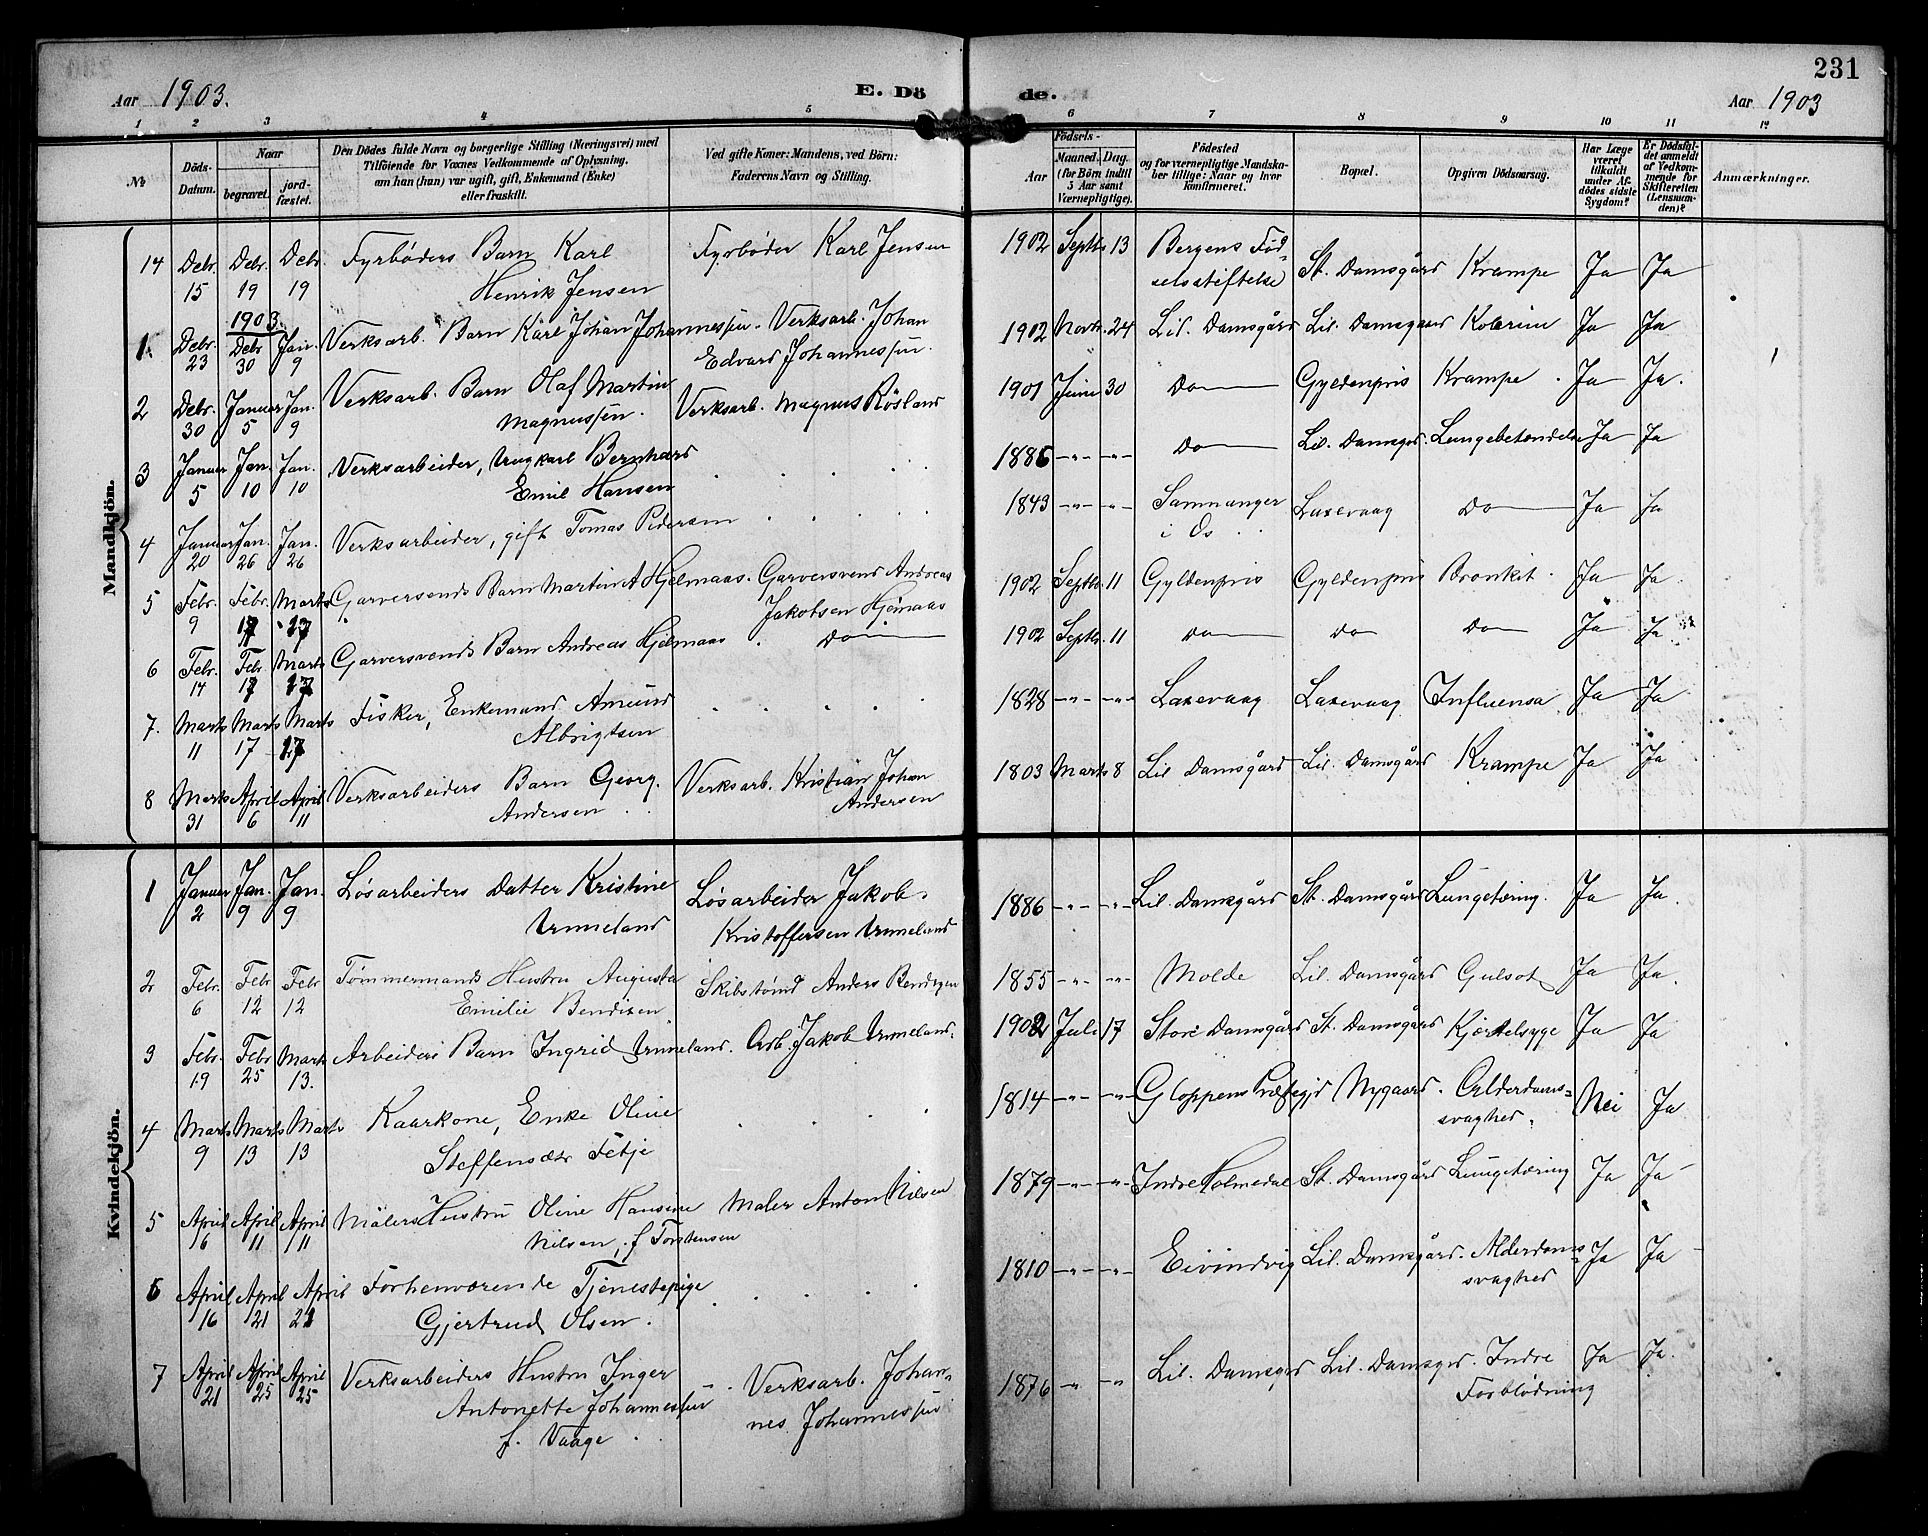 231
Aar 1903. E. Dö de. Aar 1903
1 2 3 4 5 6 7 8 9 10 11 12
№ Döds-Datum. Naar begravet. jord-fæstet. Den Dödes fulde Navn og borgerlige Stilling (Næringsvei) med Tilföiende for Voxnes Vedkommende af Oplysning, om han (hun) var ugift, gift, Enkemand (Enke) eller fraskilt. Ved gifte Koner: Mandens, ved Börn: Faderens Navn og Stilling. Födsels- Aar Maaned. Dag. (for Börn indtil 5 Aar samt Værnepligtige). Födested og for værnepligtige Mandskaber tillige: Naar og hvor konfirmeret. Bopæl. Opgiven Dödsaarsag. Har Læge været tilkaldt under Afdödes sidste Sygdom? Er Dödsfaldet anmeldt af Vedkommende for Skifteretten (Lensmanden)? Anmærkninger.
Mandkjön.
14 Debr. 15 Debr. 19 Debr. 19 Fyrbøders Barn Karl Henrik Jensen Fyrbøder Karl Jensen 1902 Septbr. 13 Bergens Fødselsstiftelse St. Damsgård Krampe Ja Ja
1903.
1 Debr. 23 Debr 30 Jan. 9 Verksarb. Barn Karl Johan Johannessen. Verksarb. Johan Edvard Johannessen. 1902 Novbr. 24 Lil. Damsgård Lil. Damsgaard Kolerine Ja Ja
2 Debr. 30 Januar 5 Jan. 9 Verksarb. Barn Olaf Martin Magnussen. Verksarb. Magnus Røsland 1901 Juni 30 Do Gyldenpris Krampe. Ja Ja.
3 Januar 5 Jan. 10 Jan. 10 Verksarbeider, Ungkarl Bernhard Emil Hansen 1886 -"- -"- Do Lil. Damsgrd. Lungebetændelse Ja Ja
4 Januar 20 Jan. 26 Jan. 26 Verksarbeider, gift Tomas Pedersen 1843 -"- -"- Samnanger i Os Laxevaag Do Ja Ja
5 Febr. 9 Febr. 17 Marts 27 Garversvends Barn Martin A Hjelmaas. Garversvend Andreas Jakobsen Hjelmaas 1902 Septbr. 11 Gyldenpris Gyldenpris Bronkit. Ja Ja.
6 Febr. 14 Febr. 17 Marts 27 Garversvends Barn Andreas Hjelmaas. Do 1902 Septbr. 11 Do Do Do Ja Ja
7. Marts 11 Marts 17 Marts 17 Fisker, Enkemand Amund Albrigtsen 1828 -"- -"- Laxevaag Laxevaag Influensa Ja Ja
8 Marts 31 April 6 April 11 Verksarbeiders Barn Georg Andersen Verksarb. Kristian Johan Andersen 1803 Marts 8 Lil Damsgård Lil. Damsgård Krampe Ja Ja
Kvindekjön.
1 Januar 2 Jan. 9 Jan. 9 Løsarbeiders Datter Kristine Unneland Løsarbeider Jakob Kristoffersen Unneland 1886 -"- -"- Lil. Damsgård St. Damsgård Lungetæring. Ja Ja.
2 Febr. 6 Febr 12 Febr 12 Tømmermands Hustru Augusta Emilie Bendixen Skibstømd Anders Bendixen 1855 -"- -"- Molde Lil. Damsgård Gulsot Ja Ja.
3 Febr. 19 Febr 25 Marts 13. Arbeiders Barn Ingrid Unneland. Arb. Jakob Unneland. 1902 Juli 17 Store Damsgård St. Damsgård Kjærtelsyge Ja Ja
4 Marts 9 Marts 13 Marts 13 Kaarkone, Enke Oline Steffensdtr Fetje 1814 -"- -"- Gloppens Præstegjd Nygaard. Alderdomssvaghed. Nei Ja
5 April 6 April 11 April 11 Målers Hustru Oline Hansine Nilsen, f Torstensen Maler Anton Nilsen 1879 -"- -"- Indre Holmedal St. Damsgård Lungetæring Ja Ja
6 April 16 April 21 April 21 Forhenværende Tjenestepige Gjertrud Olsen. 1810 -"- -"- Eivindvig Lil. Damsgård. Alderdomssvaghed Ja Ja
7 April 21 April 25 April 25 Verksarbeiders Hustru Inger Antonette Johannessen f. Vaage. Verksarb. Johannes Johannessen 1876 -"- -"- Lil. Damsgrd Lil. Damsgrd. Indre Forblødning Ja Ja.